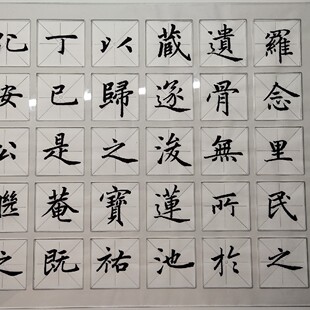 羅念里民之
遺骨無所於
藏遂浚蓮池
以歸之寶祐
丁已是菴既
安公
之